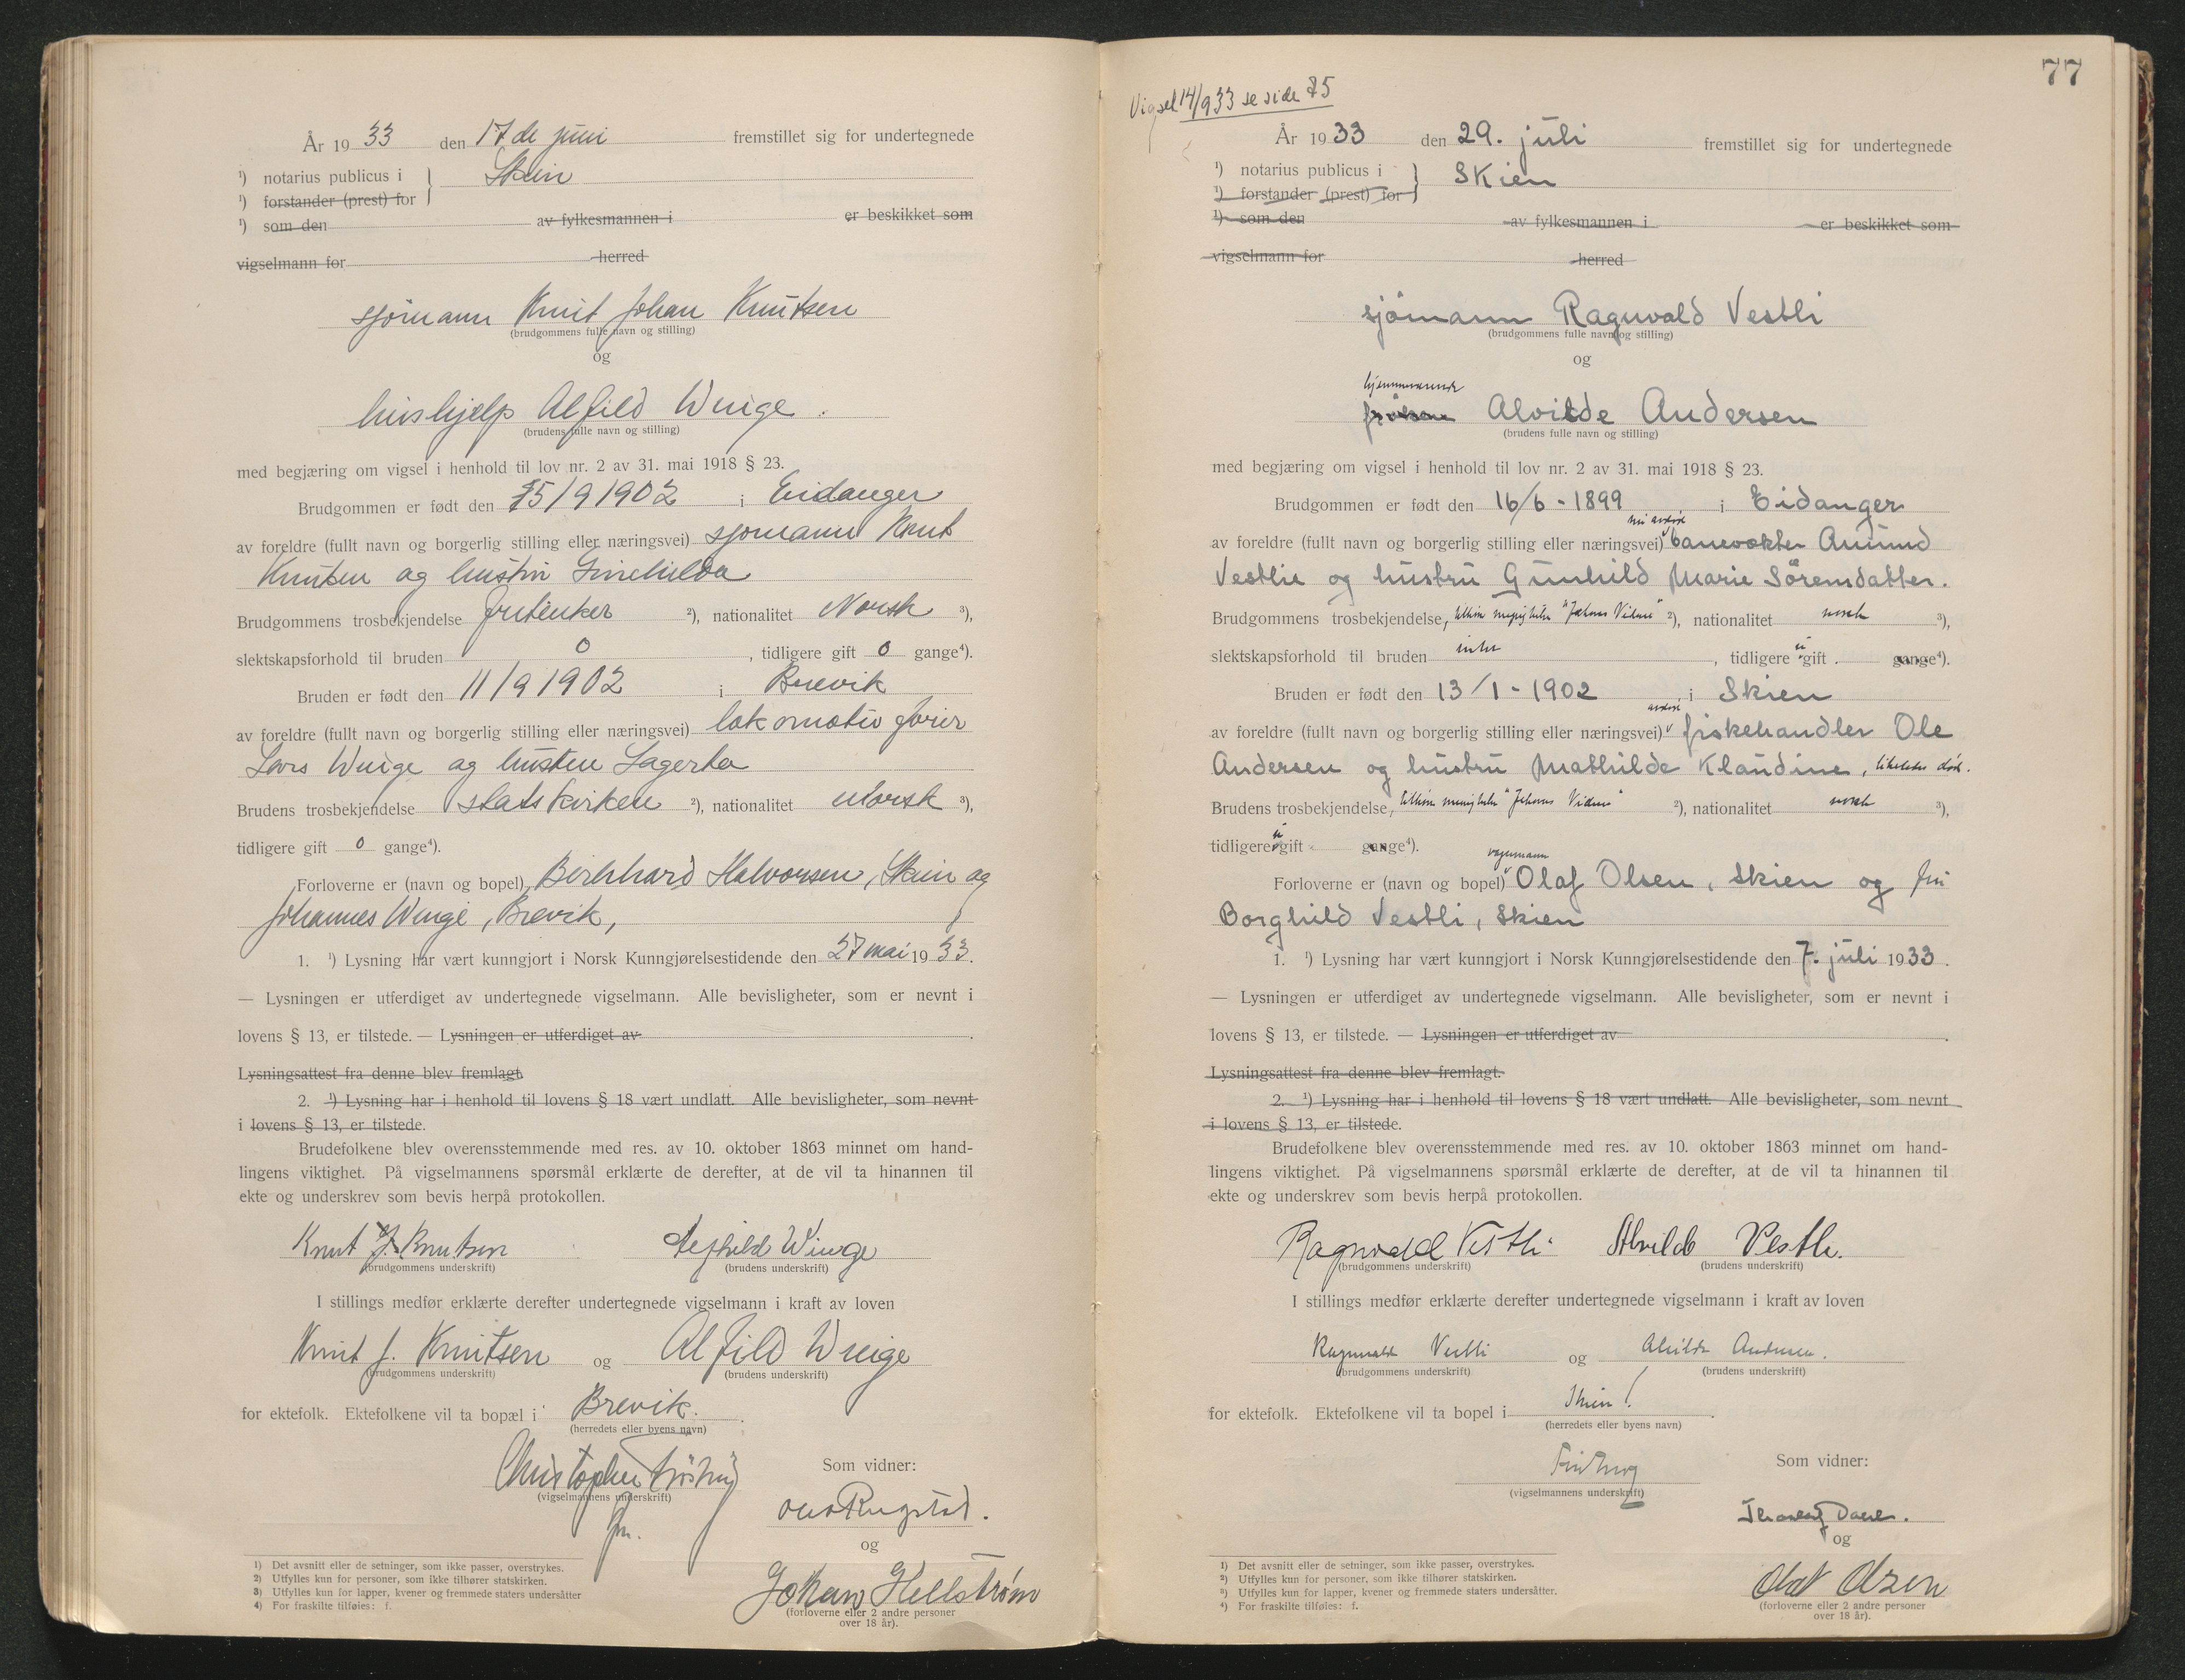 År 1933 den 17de juni fremstillet sig for undertegnede
¹) notarius publicus i } Skien
¹) forstander (prest) for
¹) som den av fylkesmannen i er beskikket som
vigselmann for herred
sjömann Knut Johan Knutsen
(brudgommens fulle navn og stilling)
og
hushjelp Alfild Winge.
(brudens fulle navn og stilling)
med begjæring om vigsel i henhold til lov nr. 2 av 31. mai 1918 § 23.
Brudgommen er født den 25/9 1902 i Eidanger
av foreldre (fullt navn og borgerlig stilling eller næringsvei) sjømann Knut
Knutsen og hustru
Brudgommens trosbekjendelse fritenker ²), nationalitet Norsk ³),
slektskapsforhold til bruden 0, tidligere gift 0 gange⁴).
Bruden er født den 11/9 1902 i Brevik
av foreldre (fullt navn og borgerlig stilling eller næringsvei) lokomotivfører
Lars Winge og hustru Lagerta
Brudens trosbekjendelse statskirken ²), nationalitet Norsk ³),
tidligere gift 0 gange⁴).
Forloverne er (navn og bopel) Halvorsen, Skien og
Johannes Winge, Brevik,
1. ¹) Lysning har vært kunngjort i Norsk Kunngjørelsestidende den 27 mai 1933.
— Lysningen er utferdiget av undertegnede vigselmann. Alle bevisligheter, som er nevnt i
lovens § 13, er tilstede. — Lysningen er utferdiget av
Lysningsattest fra denne blev fremlagt.
2. ¹) Lysning har i henhold til lovens § 18 vært undlatt. Alle bevisligheter, som nevnt
i lovens § 13, er tilstede.
Brudefolkene blev overensstemmende med res. av 10. oktober 1863 minnet om hand-
lingens viktighet. På vigselmannens spørsmål erklærte de derefter, at de vil ta hinannen til
ekte og underskrev som bevis herpå protokollen.
Knut J. Knutsen Alfhild Winge
(brudgommens underskrift) (brudens underskrift)
I stillings medfør erklærte derefter undertegnede vigselmann i kraft av loven
Knut J. Knutsen og Alfild Winge
(brudgommens underskrift) (brudens underskrift)
for ektefolk. Ektefolkene vil ta bopæl i Brevik.
(herredets eller byens navn)
Christopher
(vigselmannens underskrift)
Som vidner:
og
Johan Hellstrøm
(forloverne eller 2 andre personer
over 18 år).
1) Det avsnitt eller de setninger, som ikke passer, overstrykes.
2) Utfylles kun for personer, som ikke tilhører statskirken.
3) Utfylles kun for lapper, kvener og fremmede staters undersåtter
4) For fraskilte tilføies: f.
77
Vigsel 14/9 33 se side 85
År 1933 den 29. juli fremstillet sig for undertegnede
¹) notarius publicus i } Skien
¹) forstander (prest) for
¹) som den av fylkesmannen i er beskikket som
vigselmann for herred
sjömann Ragnvald Vestli
(brudgommens fulle navn og stilling)
og
hjemmeværende
frøken Alvilde Andersen
(brudens fulle navn og stilling)
med begjæring om vigsel i henhold til lov nr. 2 av 31. mai 1918 § 23.
Brudgommen er født den 16/6 - 1899 i Eidanger
av foreldre (fullt navn og borgerlig stilling eller næringsvei) banevokter Amund
Vestlie og hustru Gunhild Marie Sörensdatter.
Brudgommens trosbekjendelse, "Jehovas Vidner" ²), nationalitet norsk ³),
slektskapsforhold til bruden intet, tidligere ei gift gange⁴).
Bruden er født den 13/1 - 1902, i Skien
avdöde
av foreldre (fullt navn og borgerlig stilling eller næringsvei) fiskehandler Ole
Andersen og hustru Mathilde Klaudine, likeledes død.
Brudens trosbekjendelse, "Jehovas Vidner" ²), nationalitet norsk ³),
tidligere ei gift gange⁴).
Forloverne er (navn og bopel) Olaf Olsen, Skien og fru
Borghild Vestli, Skien
1. ¹) Lysning har vært kunngjort i Norsk Kunngjørelsestidende den 7. juli 1933.
— Lysningen er utferdiget av undertegnede vigselmann. Alle bevisligheter, som er nevnt i
lovens § 13, er tilstede. — Lysningen er utferdiget av
Lysningsattest fra denne blev fremlagt.
2. ¹) Lysning har i henhold til lovens § 18 vært undlatt. Alle bevisligheter, som nevnt
i lovens § 13, er tilstede.
Brudefolkene blev overensstemmende med res. av 10. oktober 1863 minnet om hand-
lingens viktighet. På vigselmannens spørsmål erklærte de derefter, at de vil ta hinannen til
ekte og underskrev som bevis herpå protokollen.
Ragnvald Vestli Alvilde Vestli.
(brudgommens underskrift) (brudens underskrift)
I stillings medfør erklærte derefter undertegnede vigselmann i kraft av loven
Ragnvald Vestli og Alvilde Andersen.
(brudgommens underskrift) (brudens underskrift)
for ektefolk. Ektefolkene vil ta bopel i Skien.
(herredets eller byens navn)
(vigselmannens underskrift)
Som vidner:
og
Olaf Olsen
(forloverne eller 2 andre personer
over 18 år).
1) Det avsnitt eller de setninger, som ikke passer, overstrykes.
2) Utfylles kun for personer, som ikke tilhører statskirken.
3) Utfylles kun for lapper, kvener og fremmede staters undersåtter.
4) For fraskilte tilføies: f.